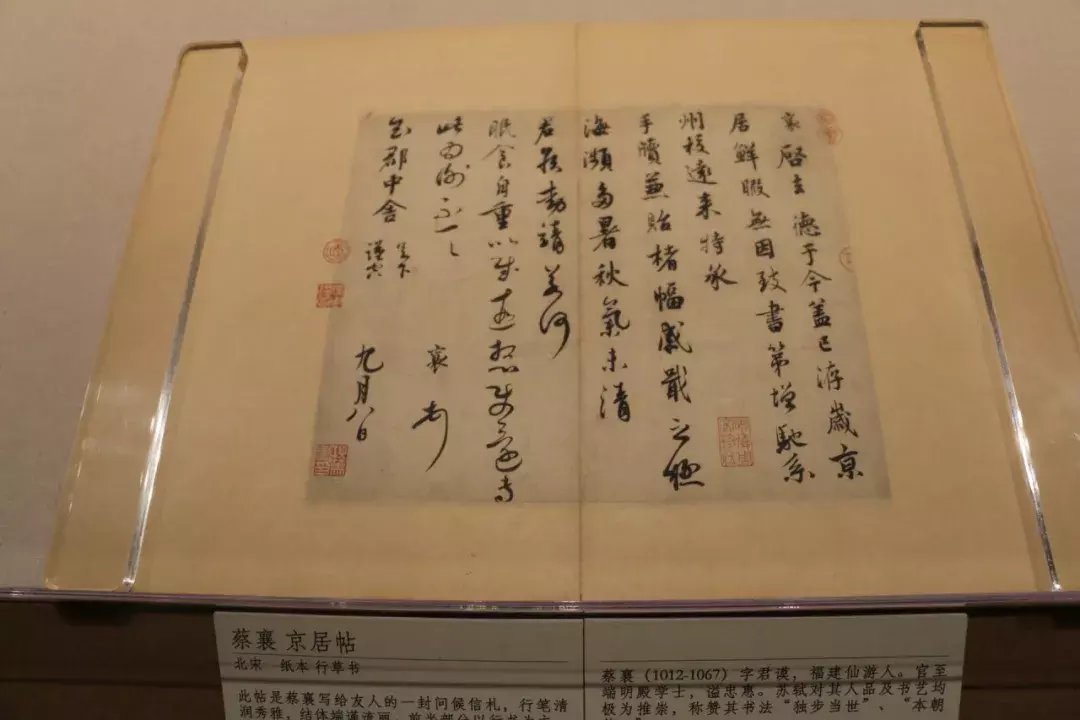 襄啓去德于今盖已洊歲京
居鮮暇無因致書第增馳系
州校遠來特承
手牘兼貽楮幅感戢之極
海瀕多暑秋氣未清
君侯動靖若何
眠食自重以慰遠想使還專
此為謝不一一 襄頓首
知郡中舍 足下
謹空
九月八日
蔡襄 京居帖
北宋 纸本 行草书
此帖是蔡襄写给友人的一封问候信札，行笔清
润秀雅，结体端谨流丽，前半部分以行书为主
蔡襄（1012-1067）字君谟，福建仙游人。官至
端明殿学士，谥忠惠。苏轼对其人品及书艺均
极为推崇，称赞其书法“独步当世”、“本朝